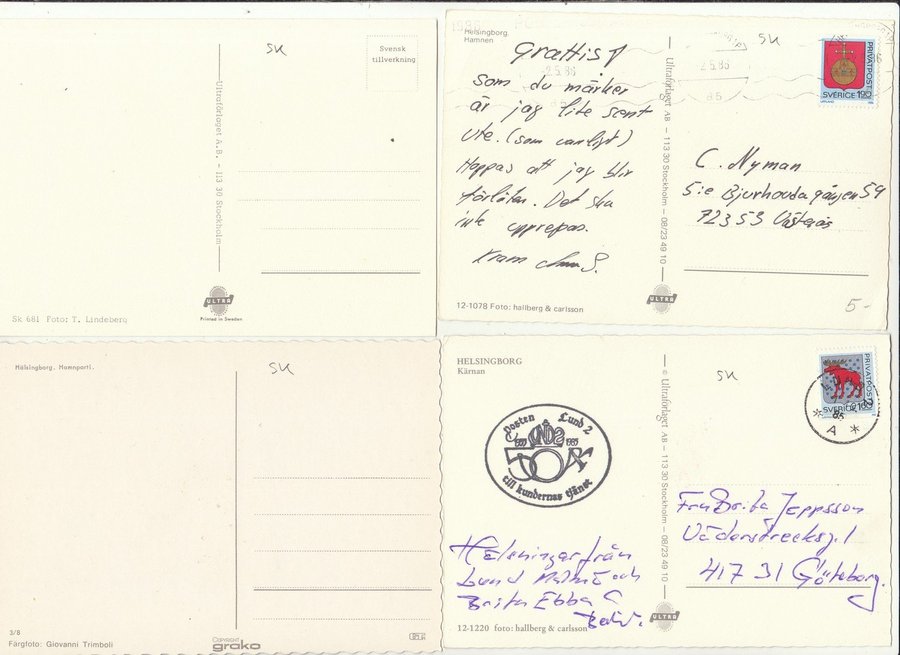 SK
Svensk
tillverkning
Ultraförlaget A.B. - 113 30 Stockholm
ULTRA
Printed in Sweden
Sk 681 Foto: T. Lindeberg
1986
Helsingborg.
Hamnen
SK
2.5.86
85
PRIVATPOST
SVERIGE 1.90
UPPLAND
Grattis!
som du märker
är jag lite sent
ute. (som vanligt)
Hoppas att jag blir
förlåten. Det ska
inte upprepas.
Kram
Ultraförlaget AB - 113 30 Stockholm - 08/23 49 10
C. Nyman
S:e Bjurhovdagången 59
72353 Västerås
ULTRA
12-1078 Foto: hallberg & carlsson
5-
Hälsingborg. Hamnparti.
SK
3/8
Färgfoto: Giovanni Trimboli
Copyright
grako
HELSINGBORG
Kärnan
SK
PRIVATPOST
SVERIGE 1.60
85
* 4 *
Posten Lund 2
1935 1985
50 År
till kundernas tjänst
© Ultraförlaget AB - 113 30 Stockholm - 08/23 49 10
Fru Brita Jeppsson
Väderstrecksg. 1
417 31 Göteborg.
Hälsningar från
Lund Malmö och
Brita Ebba
ULTRA
12-1220 foto: hallberg & carlsson